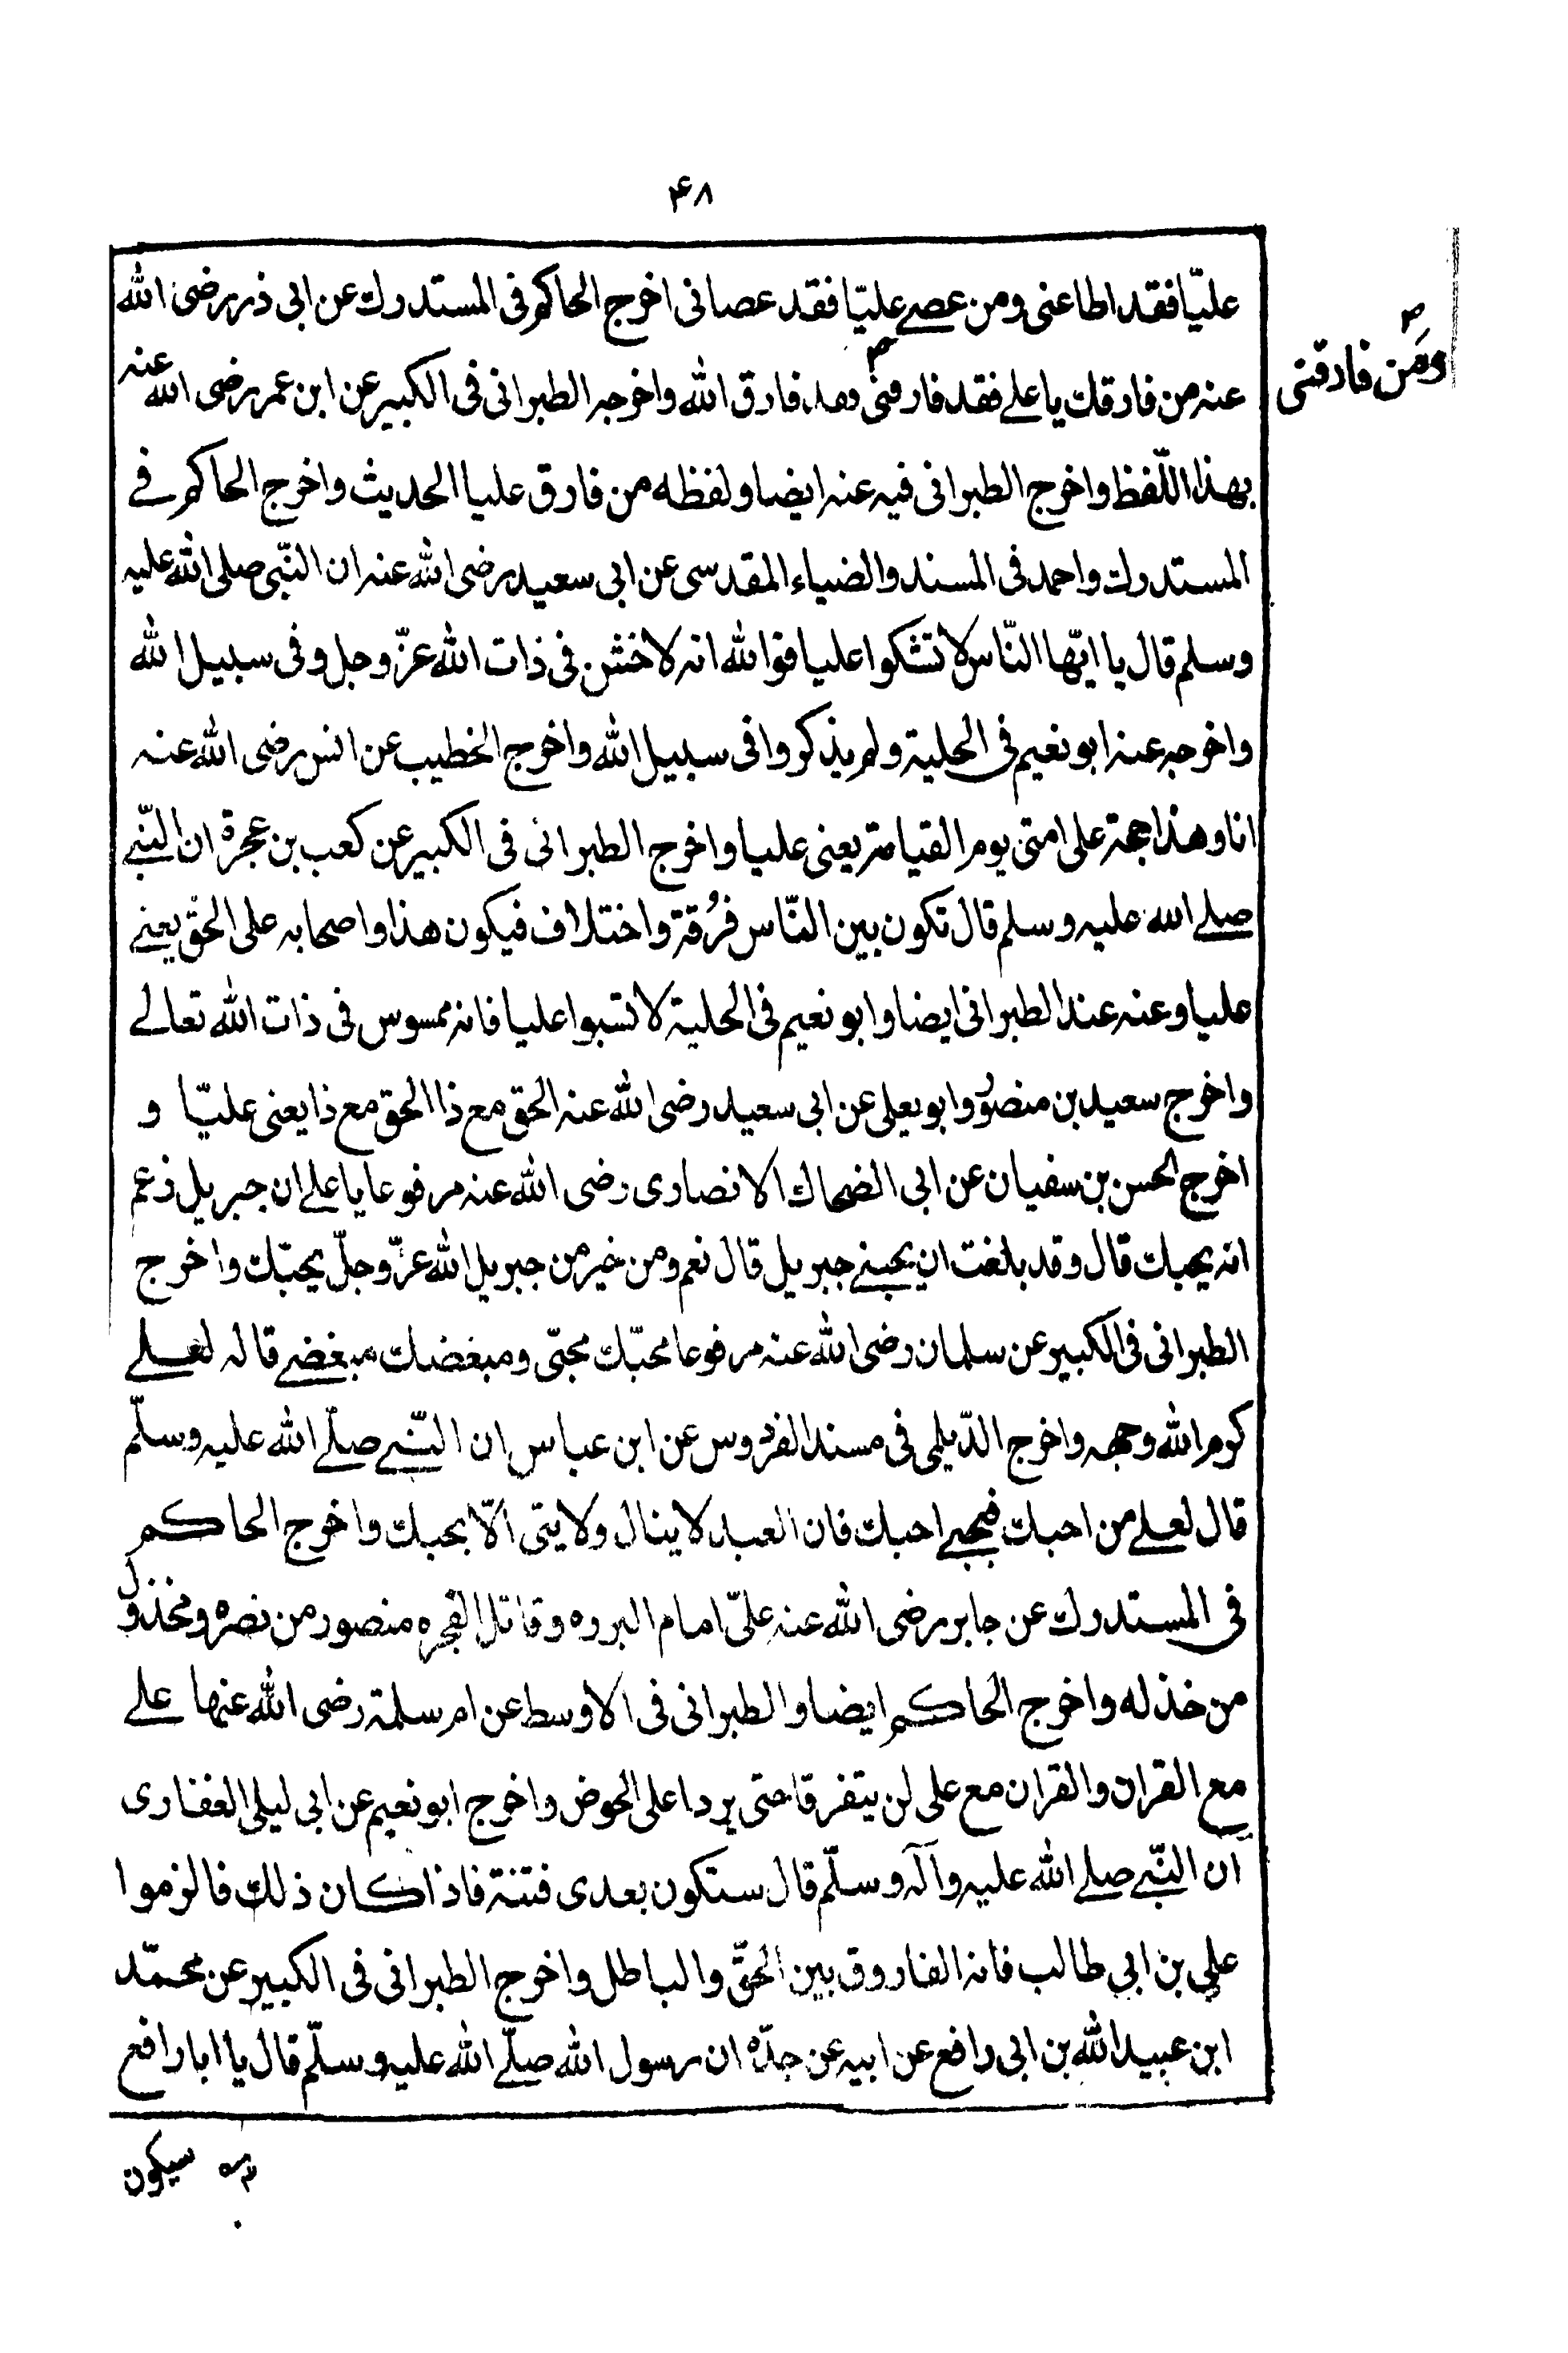 ۴۸
عليّا فقد اطاعنى ومن عصے عليّا فقد عصانى اخرج الحاكم فى المستدرك عن ابى ذر رضى الله
عنه من فارقك يا علے فقد فارقنى فقد فارق الله واخرجه الطبرانى فى الكبير عن ابن عمر رضى الله عنه
ومن فارقنى
بهذا اللّفظ واخرج الطبرانى فيه عنه ايضا ولفظه من فارق عليا الحديث واخرج الحاكم فے
المستدرك واحمد فى المسند والضياء المقدسى عن ابى سعيد رضى الله عنه ان النّبى صلى الله عليه
وسلم قال يا ايّها النّاس لا تشكوا عليا فوالله انه لاخشن فى ذات الله عزّ وجل وفى سبيل الله
واخرجه عنه ابو نعيم فى الحلية ولم يذكروا فى سبيل الله واخرج الخطيب عن انس رضى الله عنه
انا وهذا حجة على امتى يوم القيامة يعنى عليا واخرج الطبرانى فى الكبير عن كعب بن عجرة ان النّبے
صلے الله عليه وسلم قال تكون بين النّاس فُرقة واختلاف فيكون هذا واصحابه على الحقّ يعنے
عليا وعنه عند الطبرانى ايضا وابو نعيم فى الحلية لا تسبوا عليا فانه ممسوس فى ذات الله تعالے
واخرج سعيد بن منصور وابو يعلى عن ابى سعيد رضى الله عنه الحق مع ذا الحق مع ذا يعنى عليّا و
اخرج الحسن بن سفيان عن ابى الضحاك الانصارى رضى الله عنه مرفوعا يا علے ان جبريل زعم
انه يحبك قال وقد بلغت ان يحبنے جبريل قال نعم ومن خير من جبريل الله عزّ وجلّ يحبّك واخرج
الطبرانى فى الكبير عن سلمان رضى الله عنه مرفوعا محبّك محبّى ومبغضك مبغضے قاله لعلے
كرم الله وجهه واخرج الدّيلمى فى مسند الفردوس عن ابن عباس ان النّبے صلّے الله عليه وسلّم
قال لعلے من احبك فبحبے احبك فان العبد لا ينال ولايتى الّا بحبك واخرج الحاكم
فى المستدرك عن جابر رضى الله عنه علىّ امام البرره وقاتل الفجره منصور من نصره ومخذول
من خذله واخرج الحاكم ايضا والطبرانى فى الاوسط عن ام سلمة رضى الله عنها علے
مع القران والقران مع على لن يتفرقا حتى يردا على الحوض واخرج ابو نعيم عن ابى ليلى الغفارى
ان النّبے صلے الله عليه وآله وسلّم قال ستكون بعدى فتنة فاذا كان ذلك فالزموا
على بن ابي طالب فانه الفاروق بين الحقّ والباطل واخرج الطبرانى فى الكبير عن محمّد
ابن عبيد الله بن ابى رافع عن ابيه عن جدّه ان رسول الله صلّے الله عليه وسلّم قال يا ابا رافع
سيكون